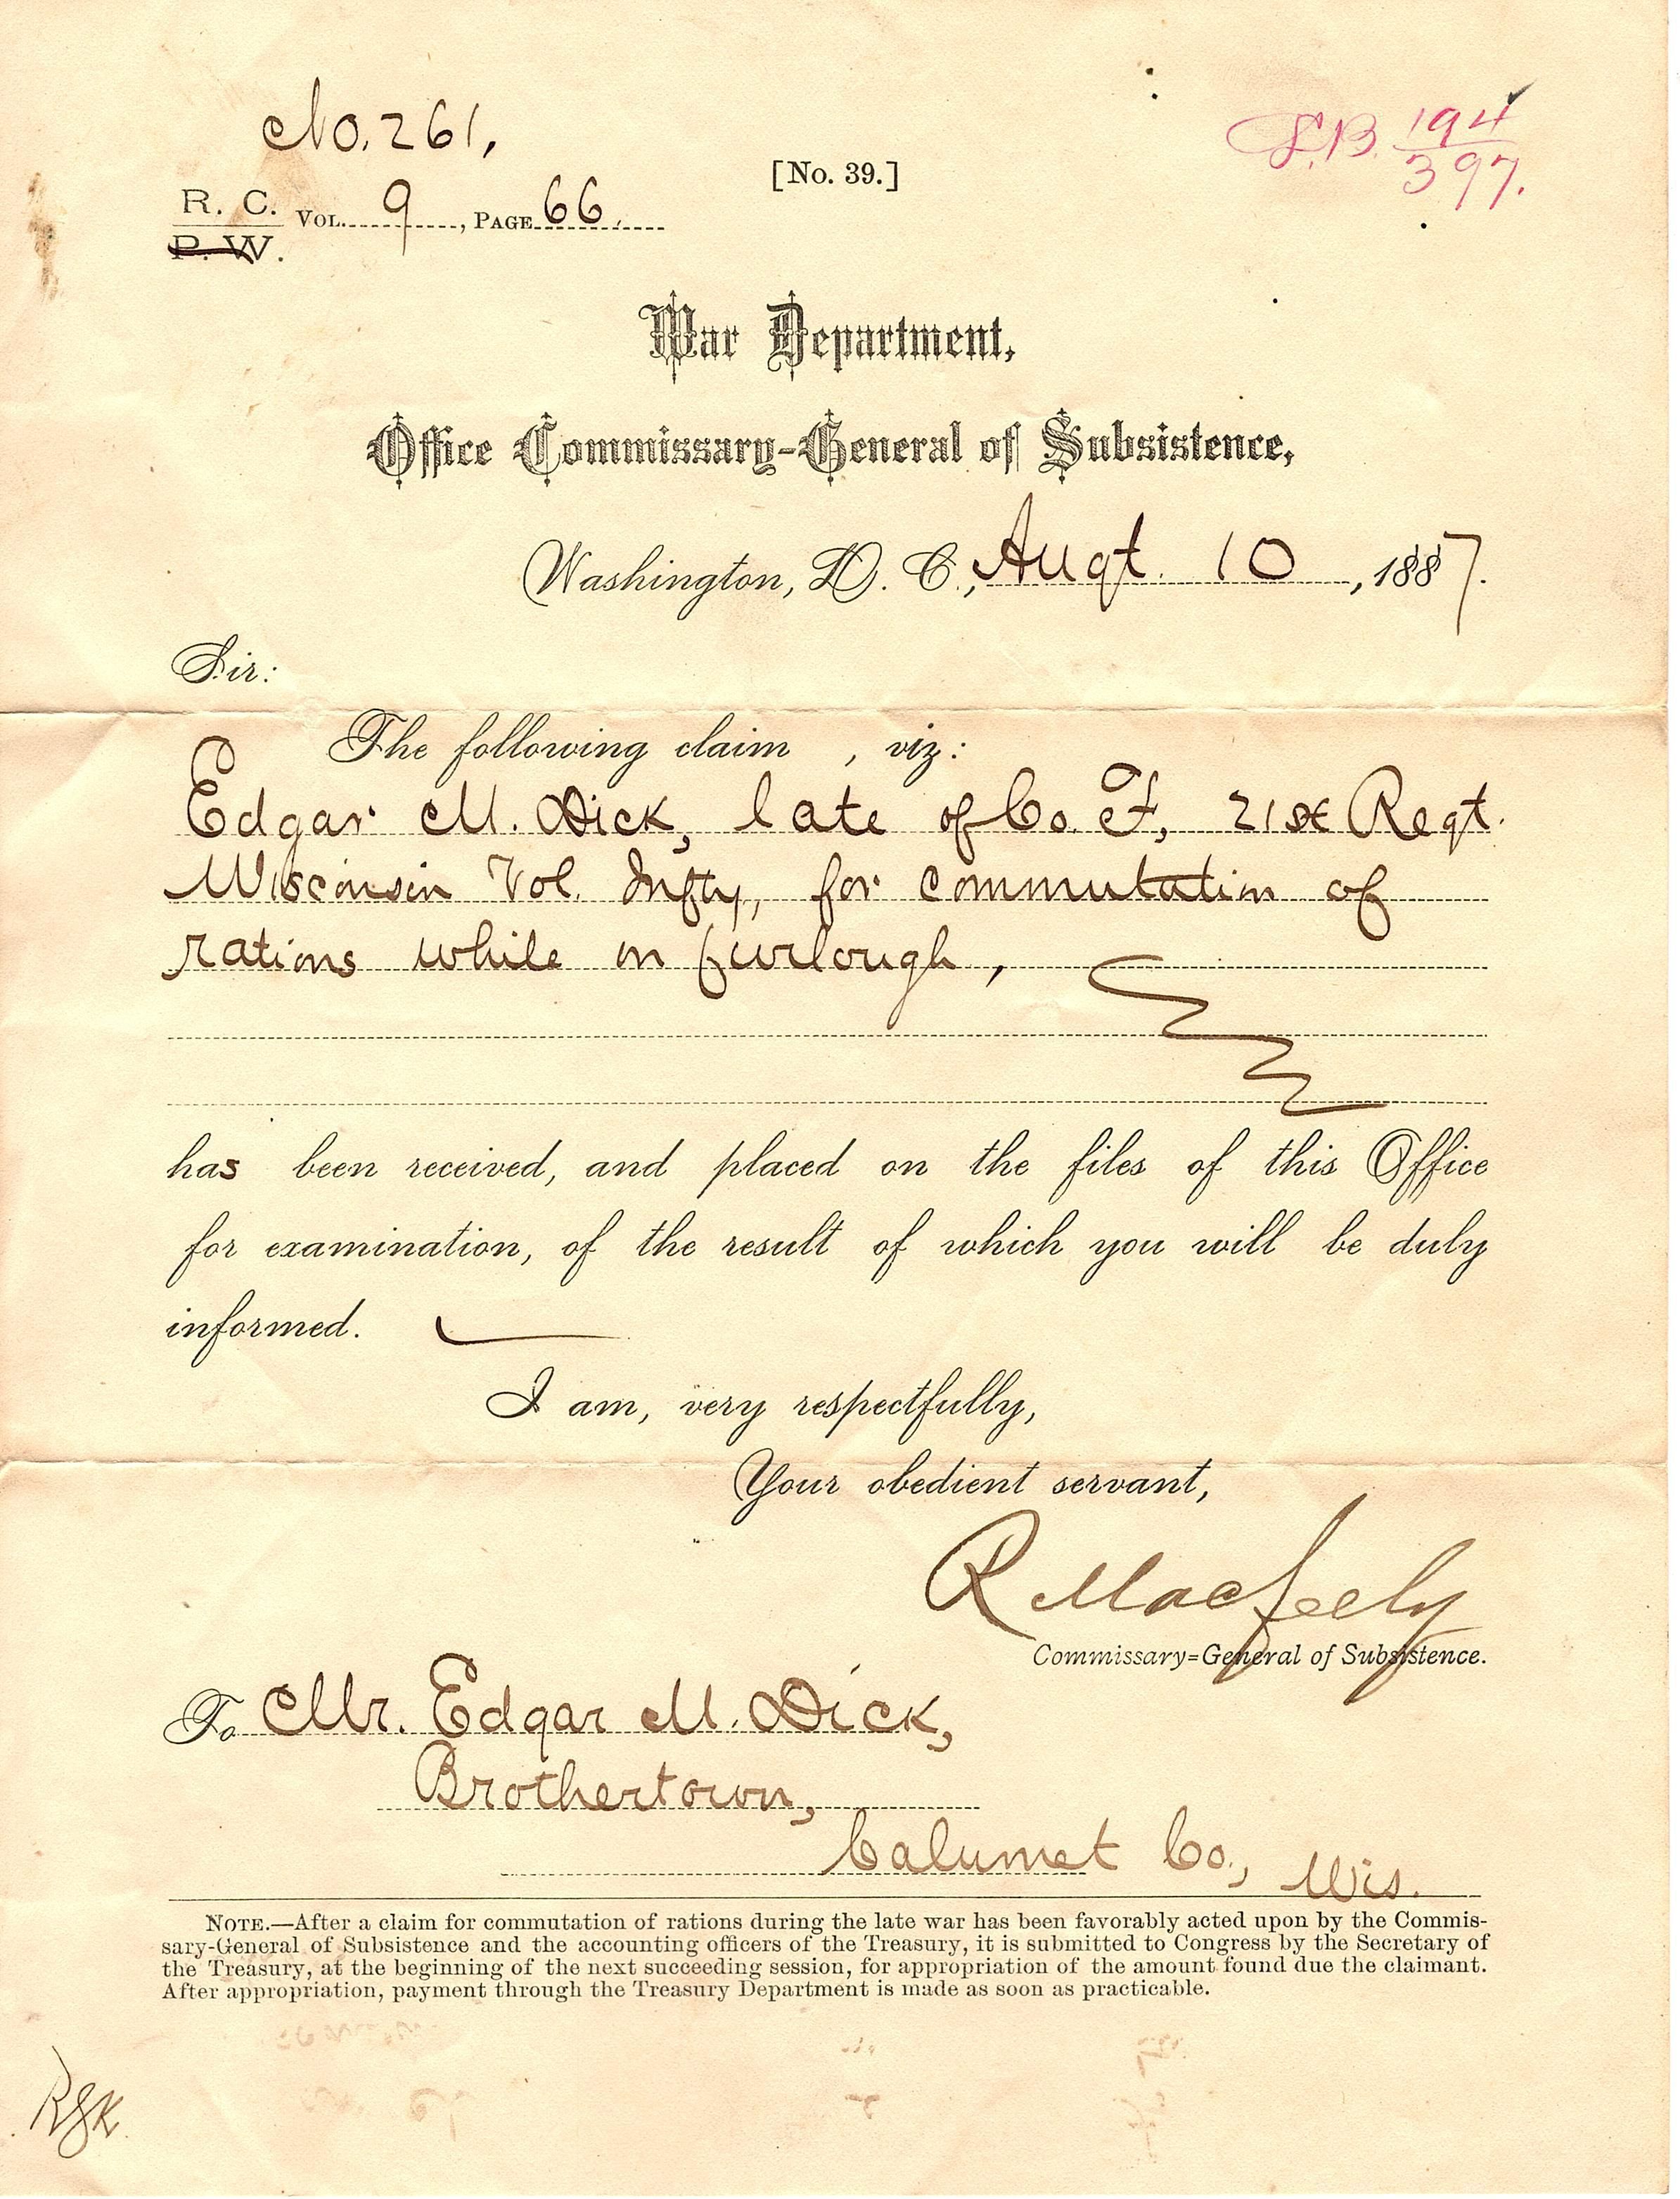 No. 261,
[No. 39.]
S.B. 194
397.
R. C. Vol. 9, Page 66.
P. W.
War Department,
Office Commissary-General of Subsistence,
Washington, D. C., Augt. 10, 1887.
Sir:
The following claim , viz:
Edgar M. Dick, late of Co. F, 21st Regt.
Wisconsin Vol. Infty, for commutation of
rations while on furlough,
has been received, and placed on the files of this Office
for examination, of the result of which you will be duly
informed.
I am, very respectfully,
Your obedient servant,
R Macfeely
Commissary=General of Subsistence.
To Mr. Edgar M. Dick,
Brothertown,
Calumet Co., Wis.
Note.—After a claim for commutation of rations during the late war has been favorably acted upon by the Commis-
sary-General of Subsistence and the accounting officers of the Treasury, it is submitted to Congress by the Secretary of
the Treasury, at the beginning of the next succeeding session, for appropriation of the amount found due the claimant.
After appropriation, payment through the Treasury Department is made as soon as practicable.